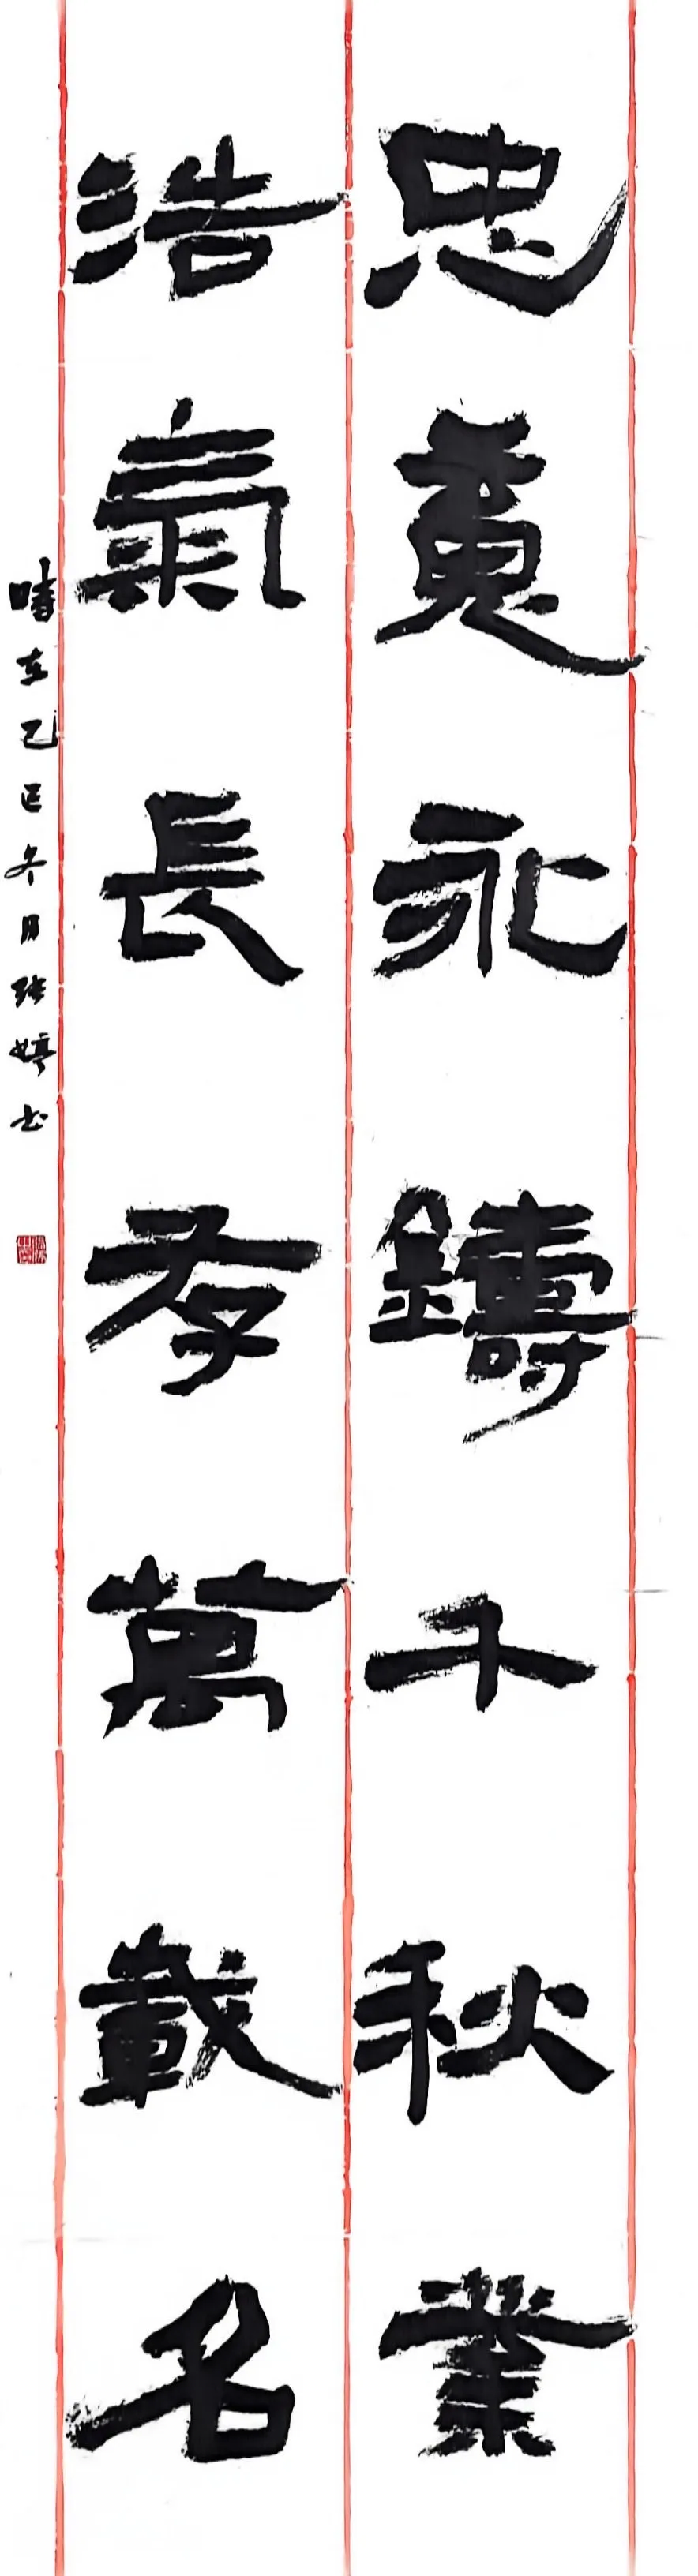 忠魂永鑄千秋業
浩氣長存萬載名
時在乙巳冬月張婷書